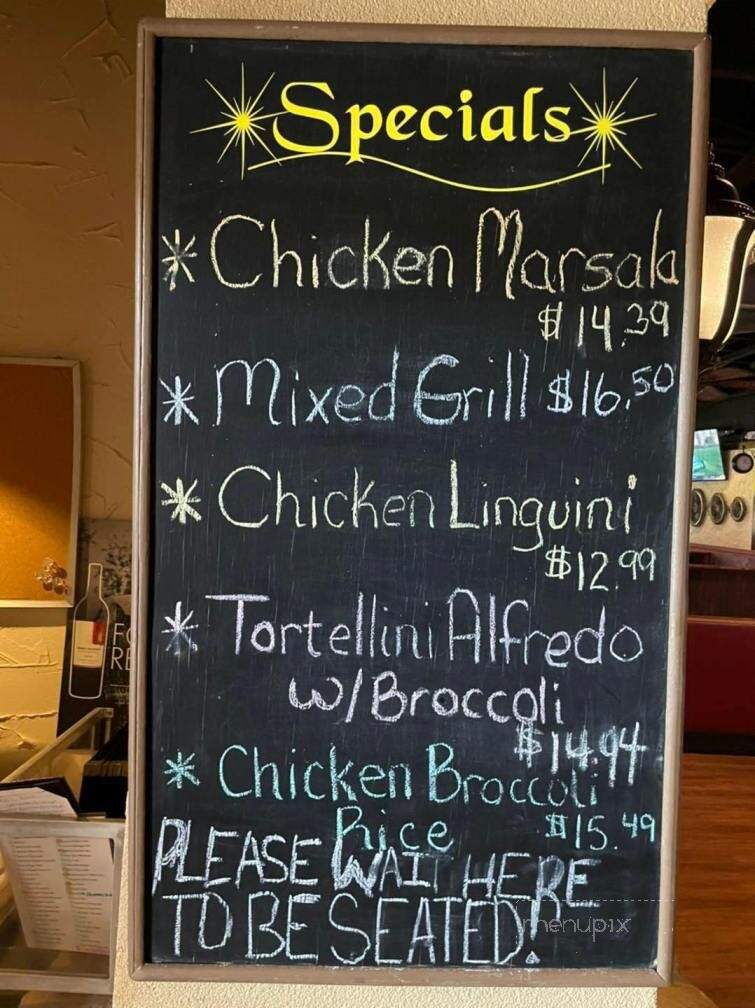 Specials
* Chicken Marsala
$14.39
* Mixed Grill $16.50
* Chicken Linguini
$12.99
* Tortellini Alfredo
w/Broccoli
$14.94
* Chicken Broccoli
Rice $15.49
PLEASE WAIT HERE
TO BE SEATED!
menupix